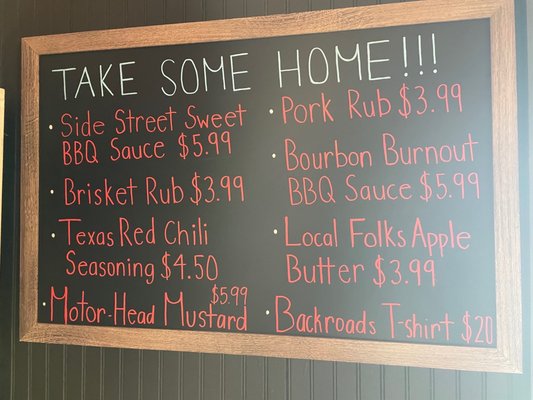 TAKE SOME HOME!!!
• Side Street Sweet
BBQ Sauce $5.99
• Brisket Rub $3.99
• Texas Red Chili
Seasoning $4.50
• Motor-Head Mustard $5.99
• Pork Rub $3.99
• Bourbon Burnout
BBQ Sauce $5.99
• Local Folks Apple
Butter $3.99
• Backroads T-shirt $20